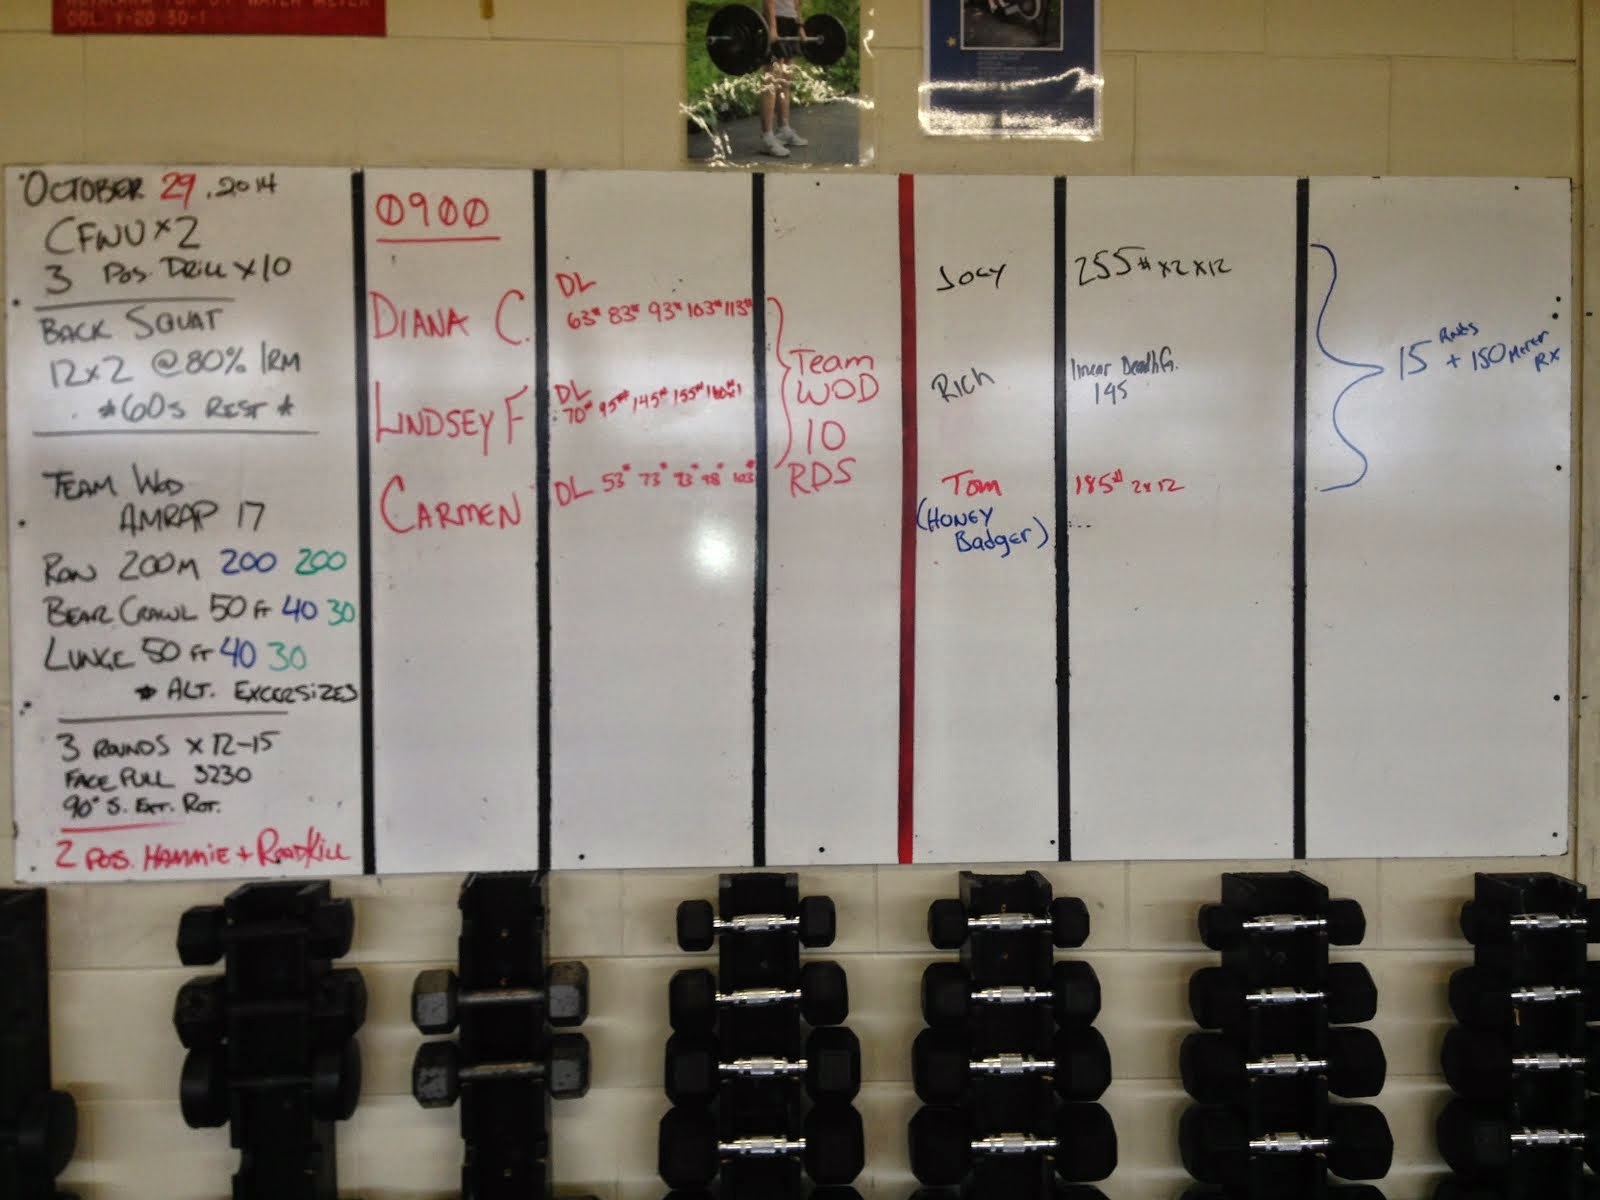 COL Y-20 30-1
OCTOBER 29, 2014
CFWU x 2
3 POS. DRILL x 10
BACK SQUAT
12x2 @ 80% 1RM
*60s REST*
TEAM WOD
AMRAP 17
ROW 200M 200 200
BEAR CRAWL 50 FT 40 30
LUNGE 50 FT 40 30
* ALT. EXCERSIZES
3 ROUNDS x 12-15
FACE PULL 3230
90° S. EXT. ROT.
2 POS. HAMMIE + ROADKILL
0900
DIANA C.
DL
63# 83# 93# 103# 113#
LINDSEY F
DL
70# 95# 145# 155#
CARMEN
DL 53# 73 98# 103#
Team
WOD
10
RDS
JOEY
255# x2x12
RICH
linear
145
Tom
185# 2x12
(HONEY
Badger)
...
15 RNDS + 150 METER
RX